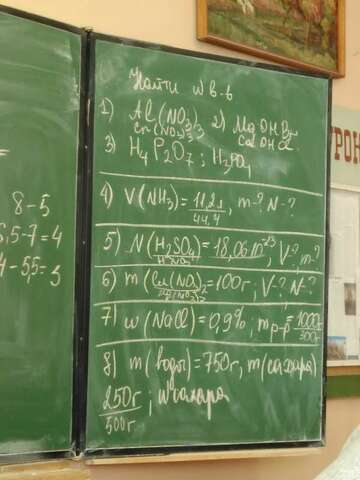 8-5
6,5-7=4
4-5,5=3
Найти w в-в
1) Al(NO3)3 2) MgOHBr
Cr(NO3)3 CaOHCl
3) H4P2O7; H3PO4
4) V(NH3)=11,2л/44,4, m-? N-?
5) N(H2SO4)=18,06·10²³, V-?, m-?
6) m(Cu(NO3)2=100г, V-? N-?
7) w(NaCl)=0,9%, mр-р=1000г/300г
8) m(воды)=750г, m(сахара)
250г/500г; w сахара
РОН